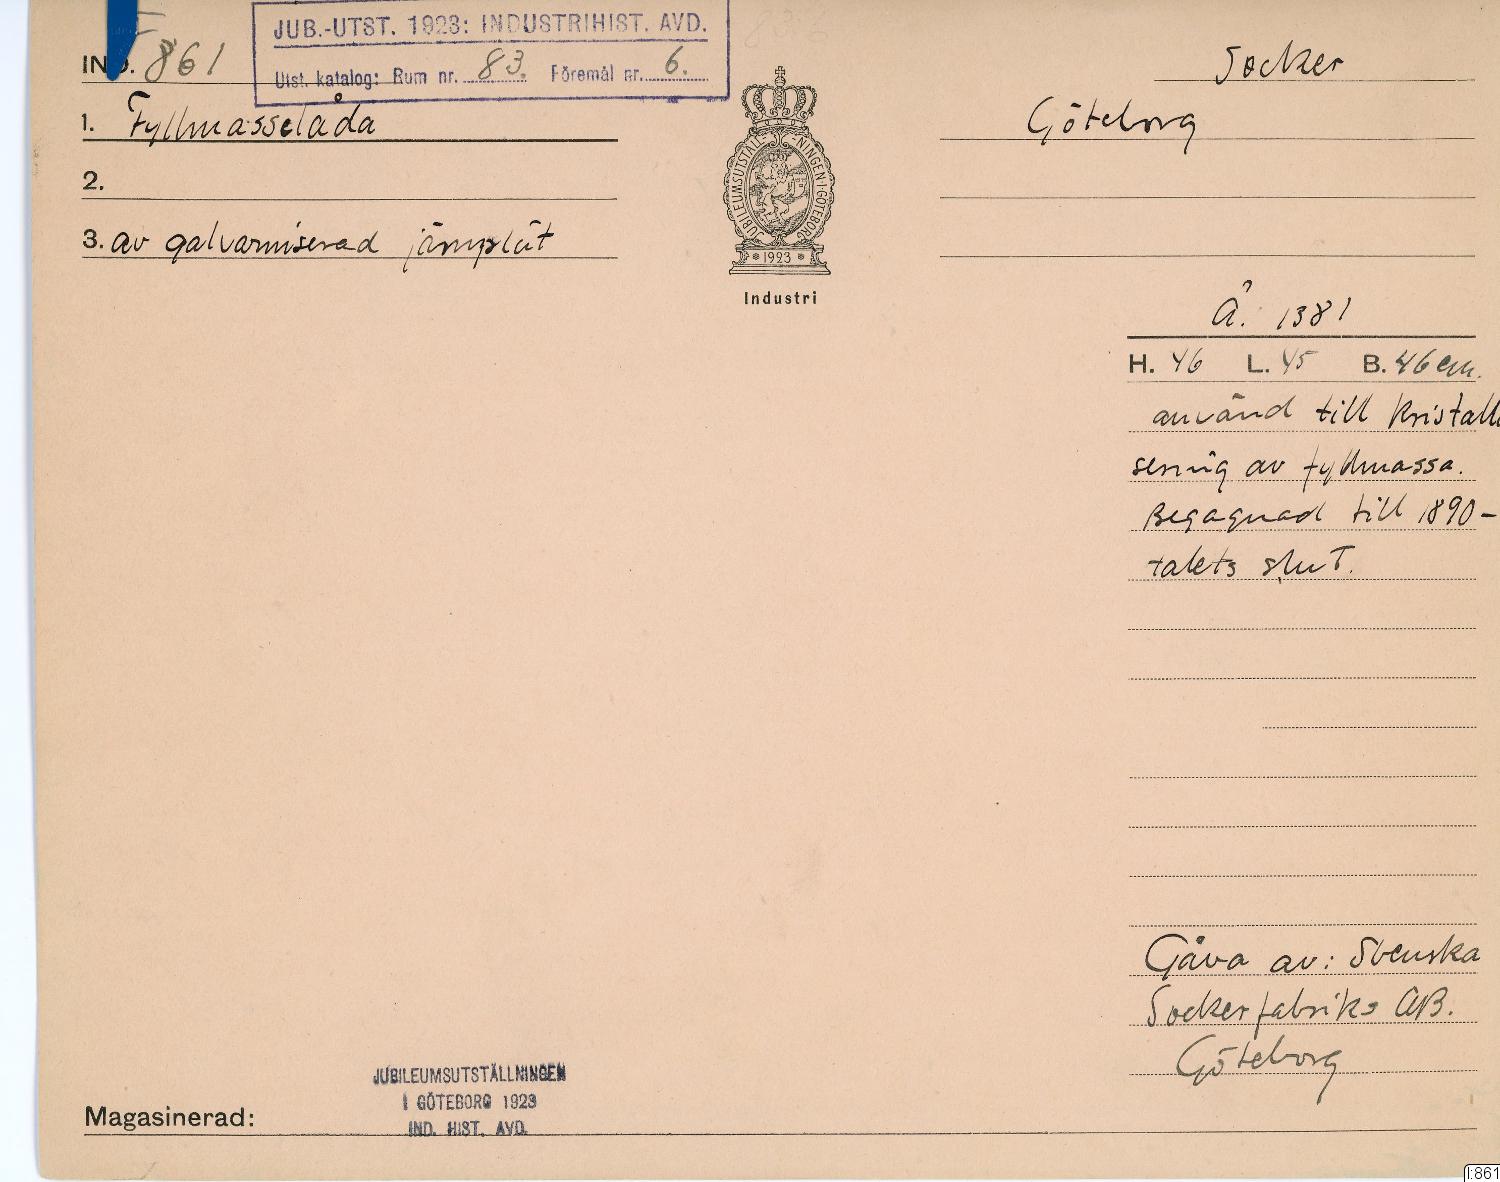 JUB.-UTST. 1923: INDUSTRIHIST. AVD.
Utst. katalog: Rum nr. 83. Föremål nr. 6.
IND. 861
Socker
1. Fyllmasselåda
Göteborg
2.
3. av galvaniserad järnplåt
JUBILEUMSUTSTÄLLNINGEN I GÖTEBORG
1923
Industri
Å. 1381
H. 46 L. 45 B. 46 cm.
använd till kristalli
sering av fyllmassa.
Begagnad till 1890-
talets slut.
Gåva av: Svenska
Sockerfabriks AB.
Göteborg
JUBILEUMSUTSTÄLLNINGEN
I GÖTEBORG 1923
IND. HIST. AVD.
Magasinerad:
I:861